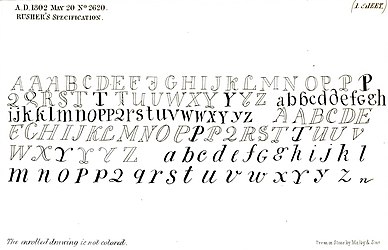 A.D. 1802 MAY 20 Nº 2620.
RUSHER'S SPECIFICATION.
(1 SHEET.)
A A A B C D E F G H I J K L M N O P P P
Q Q R S T T T U U V W X Y Y Y Z Z a b b c d d e f G g h
i j k k l m n o P P 2 r s t u v w w x y y z A A B C D E
F G H I J K L M N O P P P 2 Q R S T T U U V
W X Y Y Z Z a b c d e f G g h i j k l
m n o p P 2 q r s t u v w x y y z n
The enrolled drawing is not colored.
Drawn on Stone by Malby & Sons.